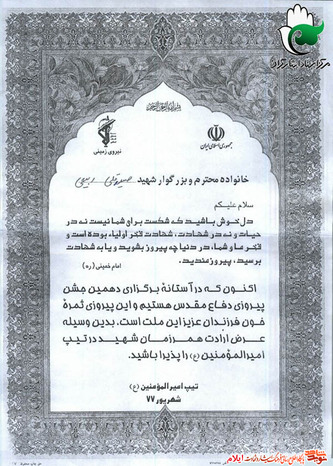 مرکز اسناد ایثارگران
بسم الله الرحمن الرحیم
جمهوری اسلامی ایران
نیروی زمینی
خانواده محترم و بزرگوار شهید
سلام علیکم
دل خوش باشید که شکست برای شما نیست نه در
حیات و نه در شهادت، شهادت فخر اولیاء بوده است و
فخر ما و شما، در دنیا چه پیروز بشوید و یا به شهادت
برسید، پیروزمندید.
امام خمینی (ره)
اکنون که در آستانهٔ برگزاری دهمین جشن
پیروزی دفاع مقدس هستیم و این پیروزی ثمرهٔ
خون فرزندان عزیز این ملت است. بدین وسیله
عرض ارادت همرزمان شهید در تیپ
امیرالمؤمنین (ع) را پذیرا باشید.
تیپ امیرالمؤمنین (ع)
شهریور ۷۷
ایلام